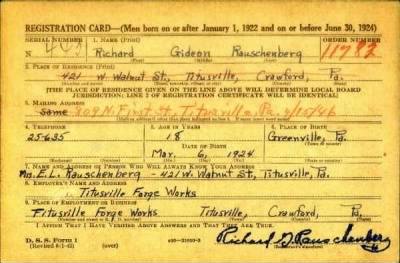 REGISTRATION CARD—(Men born on or after January 1, 1922 and on or before June 30, 1924)
SERIAL NUMBER 1. NAME (Print) ORDER NUMBER
N 443 Richard Gideon Rauschenberg 11782
(First) (Middle) (Last)
2. PLACE OF RESIDENCE (Print)
421 W. Walnut St., Titusville, Crawford, Pa.
(THE PLACE OF RESIDENCE GIVEN ON THE LINE ABOVE WILL DETERMINE LOCAL BOARD
JURISDICTION; LINE 2 OF REGISTRATION CERTIFICATE WILL BE IDENTICAL)
3. MAILING ADDRESS
Same 809 N. First St Titusville Pa
4. TELEPHONE 5. AGE IN YEARS 6. PLACE OF BIRTH
25-635 18 Greenville, Pa.
DATE OF BIRTH
Mar. 6, 1924
7. NAME AND ADDRESS OF PERSON WHO WILL ALWAYS KNOW YOUR ADDRESS
E. L. Rauschenberg - 421 W. Walnut St., Titusville, Pa.
8. EMPLOYER'S NAME AND ADDRESS
Titusville Forge Works
9. PLACE OF EMPLOYMENT OR BUSINESS
Titusville Forge Works Titusville, Crawford, Pa.
I AFFIRM THAT I HAVE VERIFIED ABOVE ANSWERS AND THAT THEY ARE TRUE.
D. S. S. Form 1
(over)
Richard G. Rauschenberg